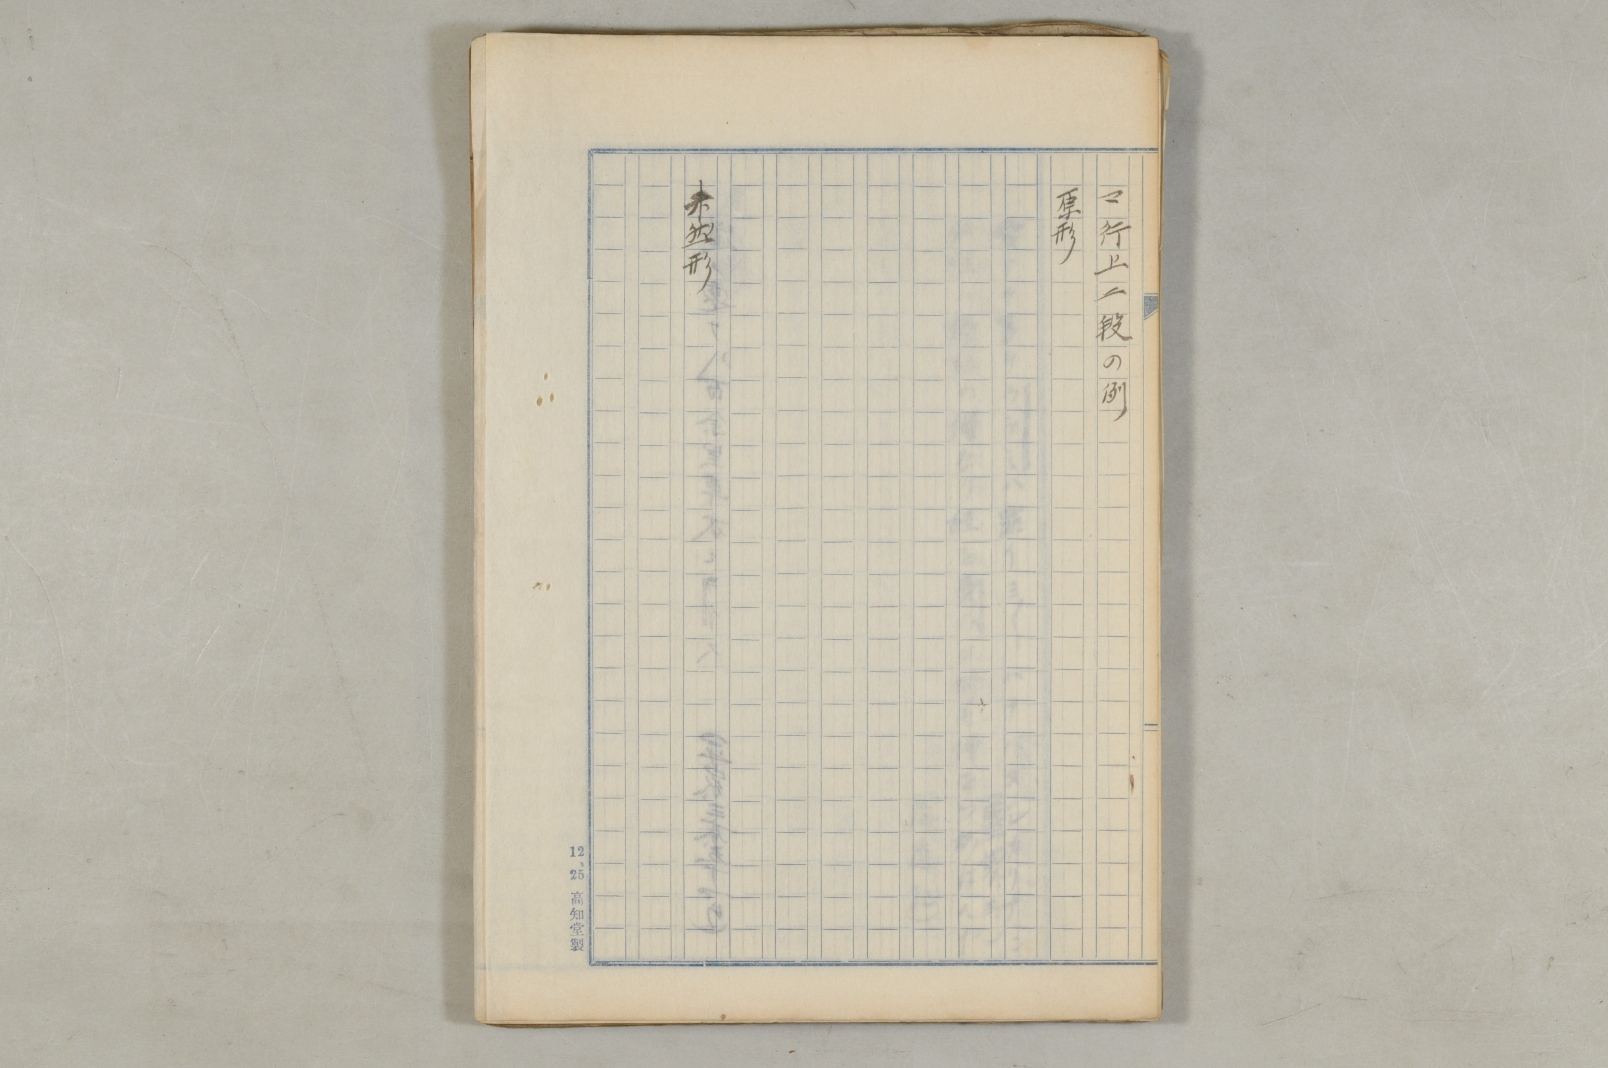 マ行上二段の例
原形
未然形
12、25 高知堂製